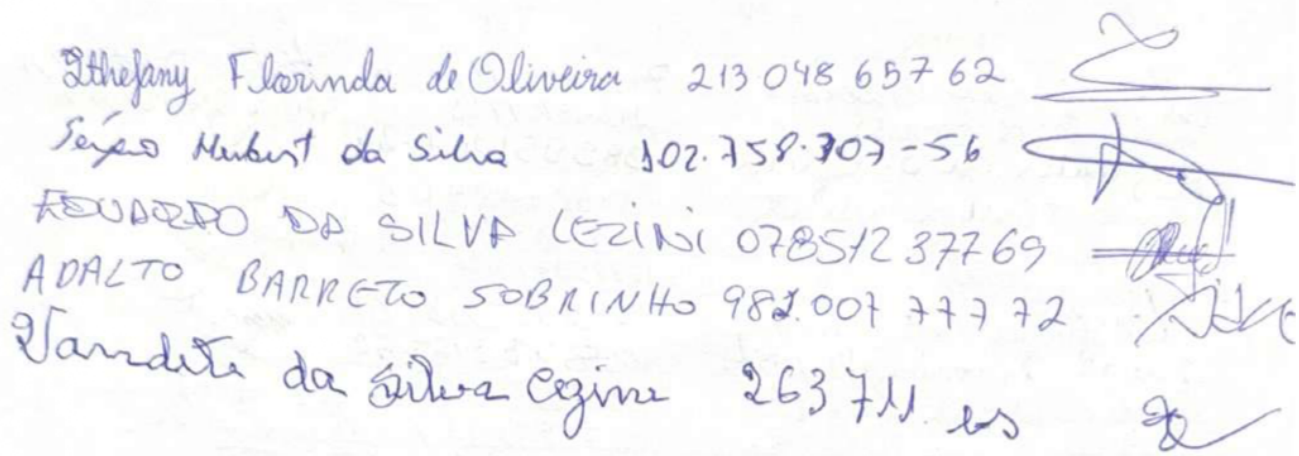 Sthefany Florinda de Oliveira 213 048 657 62
Sérgio Hubert da Silva 102.758.707-56
EDUARDO DA SILVA CEZINI 07851237769
ADALTO BARRETO SOBRINHO 982.007 777 72
Vandete da Silva Cezine 263711 es